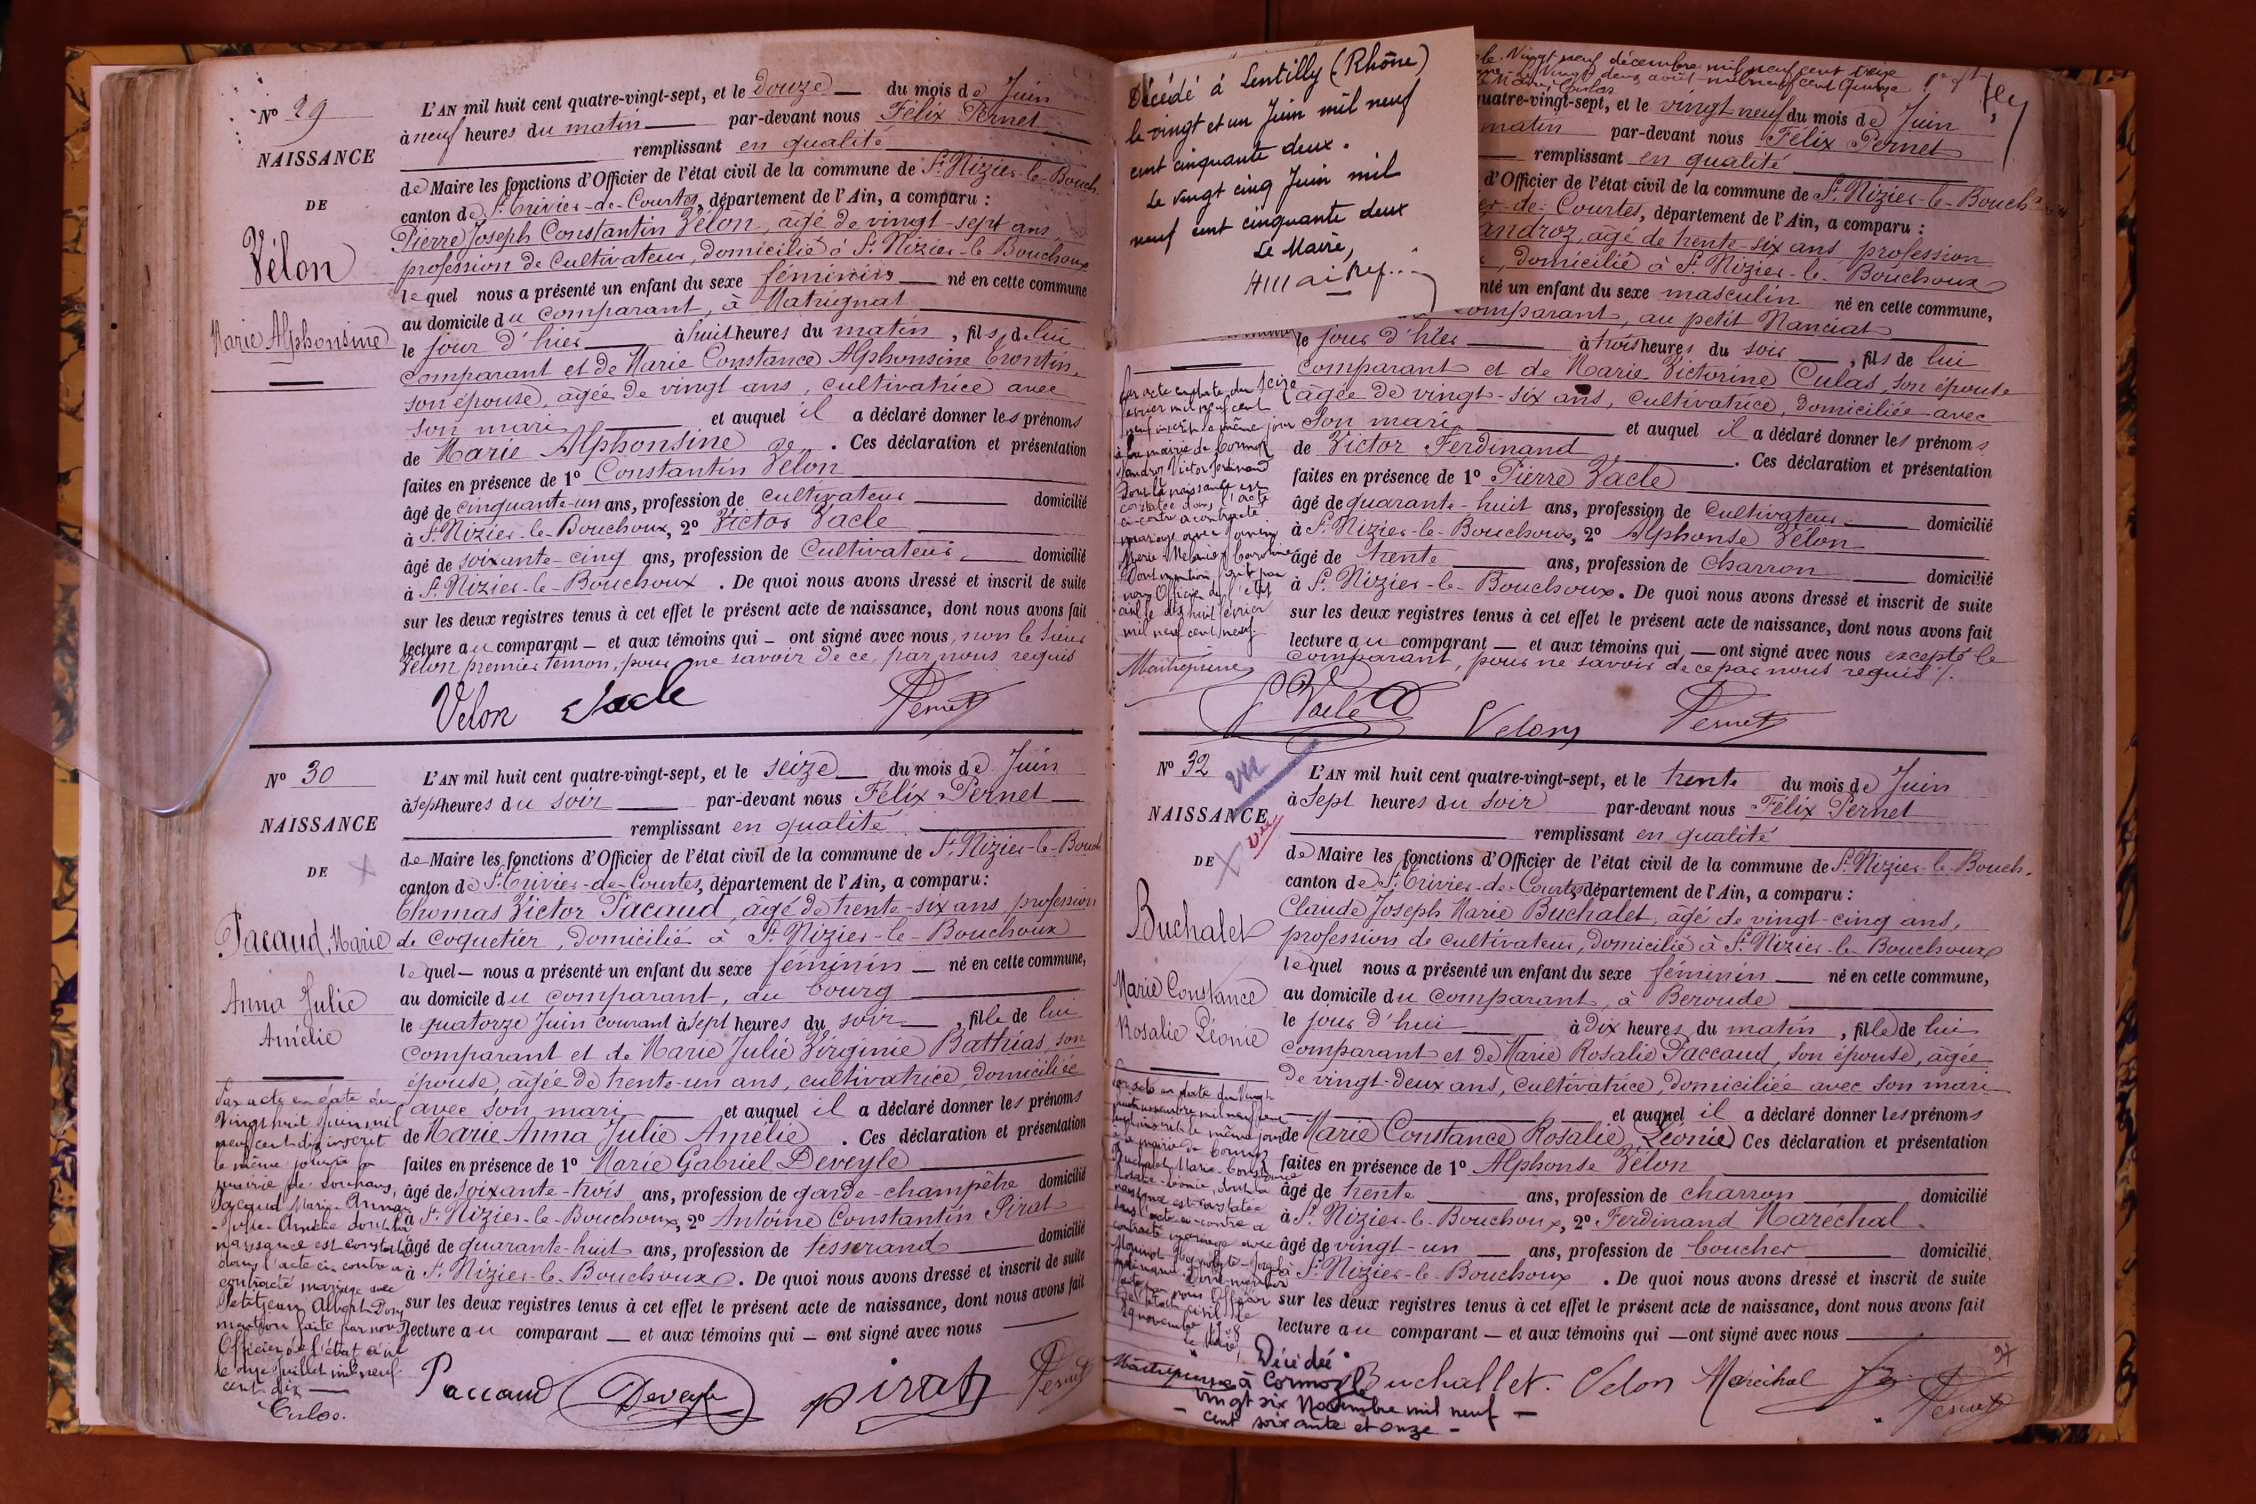 N° 29
NAISSANCE
DE
Vélon
Marie Alphonsine
L'AN mil huit cent quatre-vingt-sept, et le douze du mois de Juin
à neuf heures du matin par-devant nous Félix Pernet
remplissant en qualité
de Maire les fonctions d'Officier de l'état civil de la commune de St. Nizier-le-Bouch.
canton de St. Trivier-de-Courtes, département de l'Ain, a comparu :
Pierre Joseph Constantin Vélon, âgé de vingt-sept ans
profession de Cultivateur, domicilié à St. Nizier-le-Bouchoux
lequel nous a présenté un enfant du sexe féminin né en cette commune
au domicile du comparant, à
le jour d'hier à huit heures du matin, fils de lui
comparant et de Marie Constance Alphonsine
son épouse, âgée de vingt ans, cultivatrice avec
son mari et auquel il a déclaré donner les prénoms
de Marie Alphonsine . Ces déclaration et présentation
faites en présence de 1° Constantin Vélon
âgé de cinquante-un ans, profession de cultivateur domicilié
à St. Nizier-le-Bouchoux, 2° Victor Vacle
âgé de soixante-cinq ans, profession de Cultivateur domicilié
à St. Nizier-le-Bouchoux . De quoi nous avons dressé et inscrit de suite
sur les deux registres tenus à cet effet le présent acte de naissance, dont nous avons fait
lecture au comparant — et aux témoins qui — ont signé avec nous, non le sieur
Vélon premier témoin, pour ne savoir de ce par nous requis
Velon Vacle Pernet
N° 30
NAISSANCE
DE
Pacaud, Marie
Anna Julie
Amélie
Par acte en date du
Vingt huit Juin mil
neuf cent dix inscrit
le même jour à la
mairie de
Pacaud Marie-Anna
-Julie-Amélie dont la
naissance est constatée
dans l'acte ci-contre a
contracté mariage avec
Petitjean Albert Dont
mention faite par nous
Officier de l'état civil
le onze Juillet mil neuf
cent dix
Culas.
L'AN mil huit cent quatre-vingt-sept, et le seize du mois de Juin
à sept heures du soir par-devant nous Félix Pernet
remplissant en qualité
de Maire les fonctions d'Officier de l'état civil de la commune de St. Nizier-le-Bouch
canton de St. Trivier-de-Courtes, département de l'Ain, a comparu :
Thomas Victor Pacaud, âgé de trente-six ans profession
de Coquetier, domicilié à St. Nizier-le-Bouchoux
lequel — nous a présenté un enfant du sexe féminin né en cette commune,
au domicile du comparant, au bourg
le quatorze Juin courant à sept heures du soir, fille de lui
comparant et de Marie Julie Virginie Bathias, son
épouse, âgée de trente-un ans, cultivatrice, domiciliée
avec son mari et auquel il a déclaré donner les prénoms
de Marie Anna Julie Amélie . Ces déclaration et présentation
faites en présence de 1° Marie Gabriel Deveyle
âgé de soixante-trois ans, profession de garde-champêtre domicilié
à St. Nizier-le-Bouchoux, 2° Antoine Constantin Pirat
âgé de quarante-huit ans, profession de tisserand domicilié
à St. Nizier-le-Bouchoux . De quoi nous avons dressé et inscrit de suite
sur les deux registres tenus à cet effet le présent acte de naissance, dont nous avons fait
lecture au comparant — et aux témoins qui — ont signé avec nous
Paccaud Deveyle Pirat Pernet
Décédé à Lentilly (Rhône)
le vingt et un Juin mil neuf
cent cinquante deux.
Le vingt cinq Juin mil
neuf cent cinquante deux
Le Maire,
le Vingt neuf décembre mil neuf cent treize
Vingt deux août mil neuf cent quinze
Culas
quatre-vingt-sept, et le vingt neuf du mois de Juin
matin par-devant nous Félix Pernet
remplissant en qualité
d'Officier de l'état civil de la commune de St. Nizier-le-Bouch
er-de-Courtes, département de l'Ain, a comparu :
androz, âgé de trente-six ans, profession
, domicilié à St. Nizier-le-Bouchoux
nté un enfant du sexe masculin né en cette commune,
comparant, au petit Nanciat
le jour d'hier à trois heures du soir, fils de lui
comparant et de Marie Victorine Culas, son épouse
âgée de vingt-six ans, Cultivatrice, domiciliée avec
son mari et auquel il a déclaré donner les prénoms
de Victor Ferdinand . Ces déclaration et présentation
faites en présence de 1° Pierre Vacle
âgé de quarante-huit ans, profession de Cultivateur domicilié
à St. Nizier-le-Bouchoux, 2° Alphonse Vélon
âgé de trente ans, profession de Charron domicilié
à St. Nizier-le-Bouchoux. De quoi nous avons dressé et inscrit de suite
sur les deux registres tenus à cet effet le présent acte de naissance, dont nous avons fait
lecture au comparant — et aux témoins qui — ont signé avec nous excepté le
comparant, pour ne savoir de ce par nous requis /.
Vacle Velon Pernet
Par acte en date du seize
février mil neuf cent
neuf inscrit le même jour
à la mairie de Cormoz
Jandroz Victor Ferdinand
dont la naissance est
constatée dans l'acte
ci-contre a contracté
mariage avec
Marie Mélanie Caroline
Dont mention faite par
nous Officier de l'état
civil le dix huit février
mil neuf cent neuf.
Maitrepierre
N° 32
vu
NAISSANCE
vu
DE
Buchalet
Marie Constance
Rosalie Léonie
Par acte en date du Vingt
huit novembre mil neuf cent
huit inscrit le même jour
à la mairie de Cormoz
Buchalet Marie-Constance
Rosalie-Léonie, dont la
naissance est constatée
dans l'acte ci-contre a
contracté mariage avec
Hippolyte-Joseph
Ferdinand dont mention
faite par nous Officier
de l'état civil le
29 novembre 1908
le Maire,
Maitrepierre
L'AN mil huit cent quatre-vingt-sept, et le trente du mois de Juin
à sept heures du soir par-devant nous Félix Pernet
remplissant en qualité
de Maire les fonctions d'Officier de l'état civil de la commune de St. Nizier-le-Bouch.
canton de St. Trivier-de-Courtes, département de l'Ain, a comparu :
Claude Joseph Marie Buchalet, âgé de vingt-cinq ans,
profession de cultivateur, domicilié à St. Nizier-le-Bouchoux
lequel nous a présenté un enfant du sexe féminin né en cette commune,
au domicile du comparant, à Beroude
le jour d'hui à dix heures du matin, fille de lui
comparant et de Marie Rosalie Paccaud, son épouse, âgée
de vingt-deux ans, cultivatrice, domiciliée avec son mari
et auquel il a déclaré donner les prénoms
de Marie Constance Rosalie Léonie Ces déclaration et présentation
faites en présence de 1° Alphonse Vélon
âgé de trente ans, profession de charron domicilié
à St. Nizier-le-Bouchoux, 2° Ferdinand Maréchal
âgé de vingt-un ans, profession de boucher domicilié
à St. Nizier-le-Bouchoux . De quoi nous avons dressé et inscrit de suite
sur les deux registres tenus à cet effet le présent acte de naissance, dont nous avons fait
lecture au comparant — et aux témoins qui — ont signé avec nous
Buchallet. Velon Maréchal Pernet
Décédée
à Cormoz le
vingt six Novembre mil neuf
cent soixante et onze